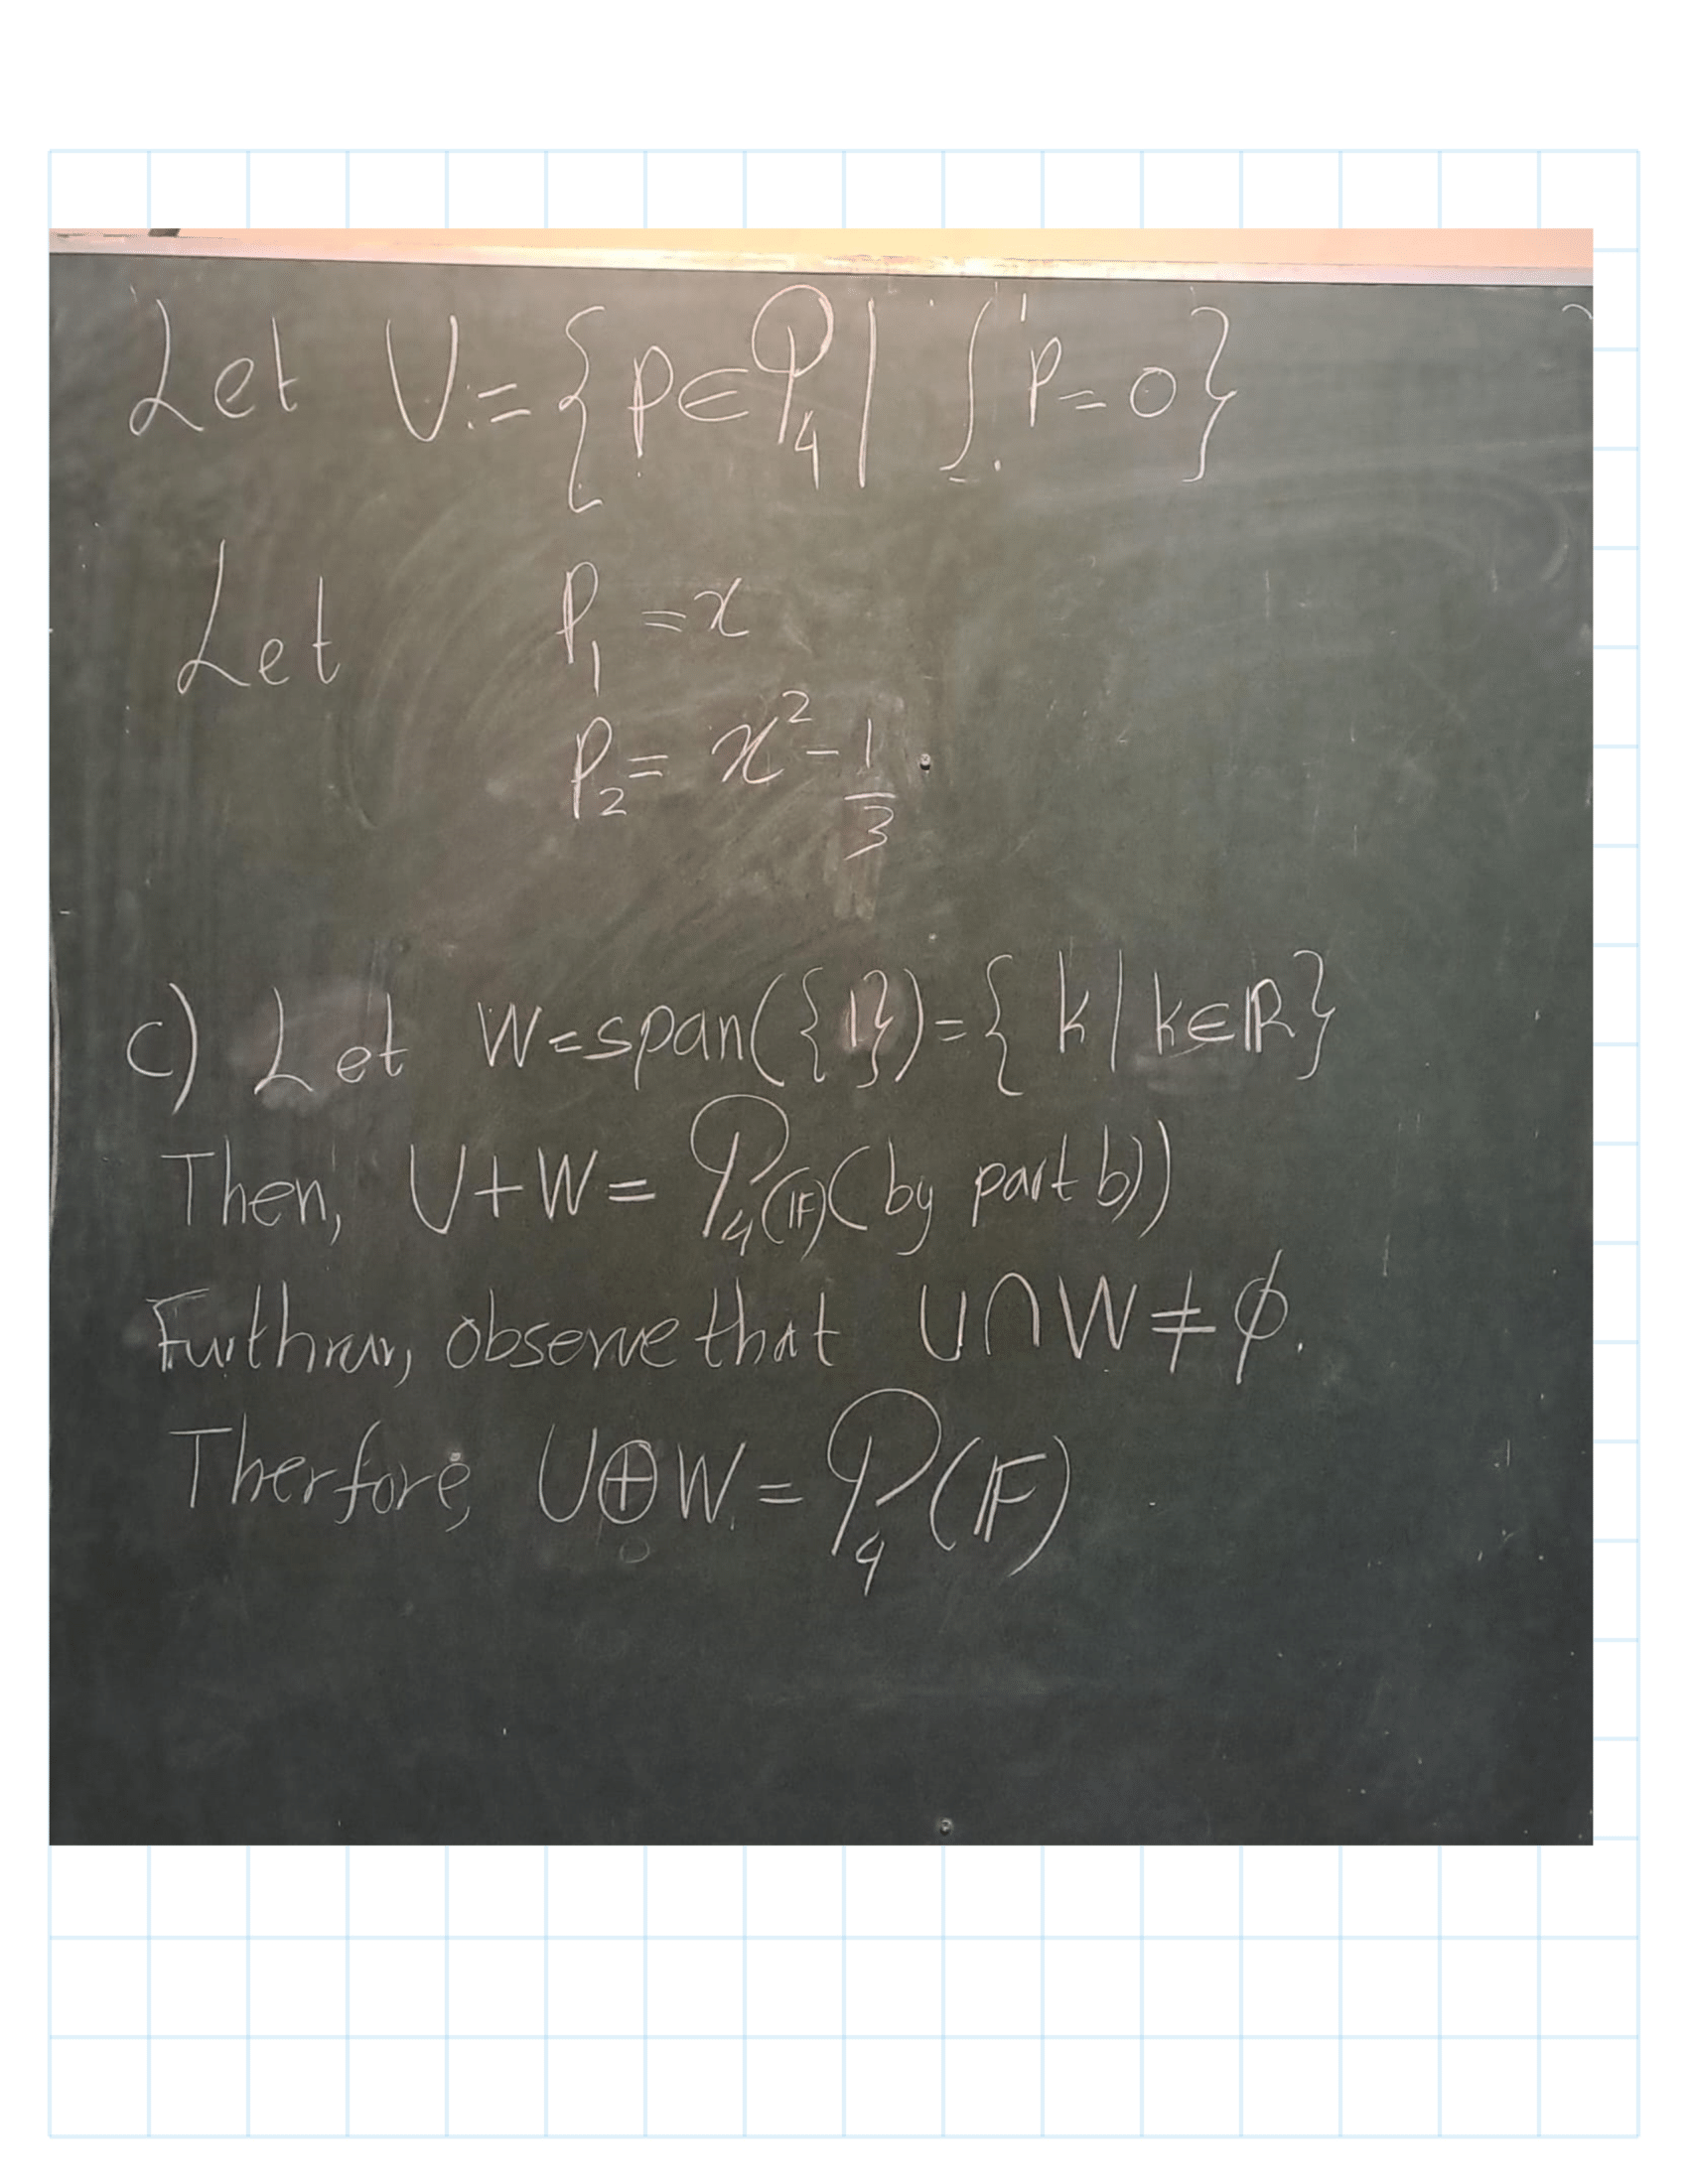 Let U:= {p∈𝒫₄ | ∫₋₁¹ p=0}
Let p₁ = x
p₂ = x² - 1/3
c) Let W=span({1})={ k | k∈ℝ}
Then, U+W= 𝒫₄(𝔽)(by part b))
observe that U∩W ≠ ϕ.
Therfore, U⊕W = 𝒫₄(𝔽)